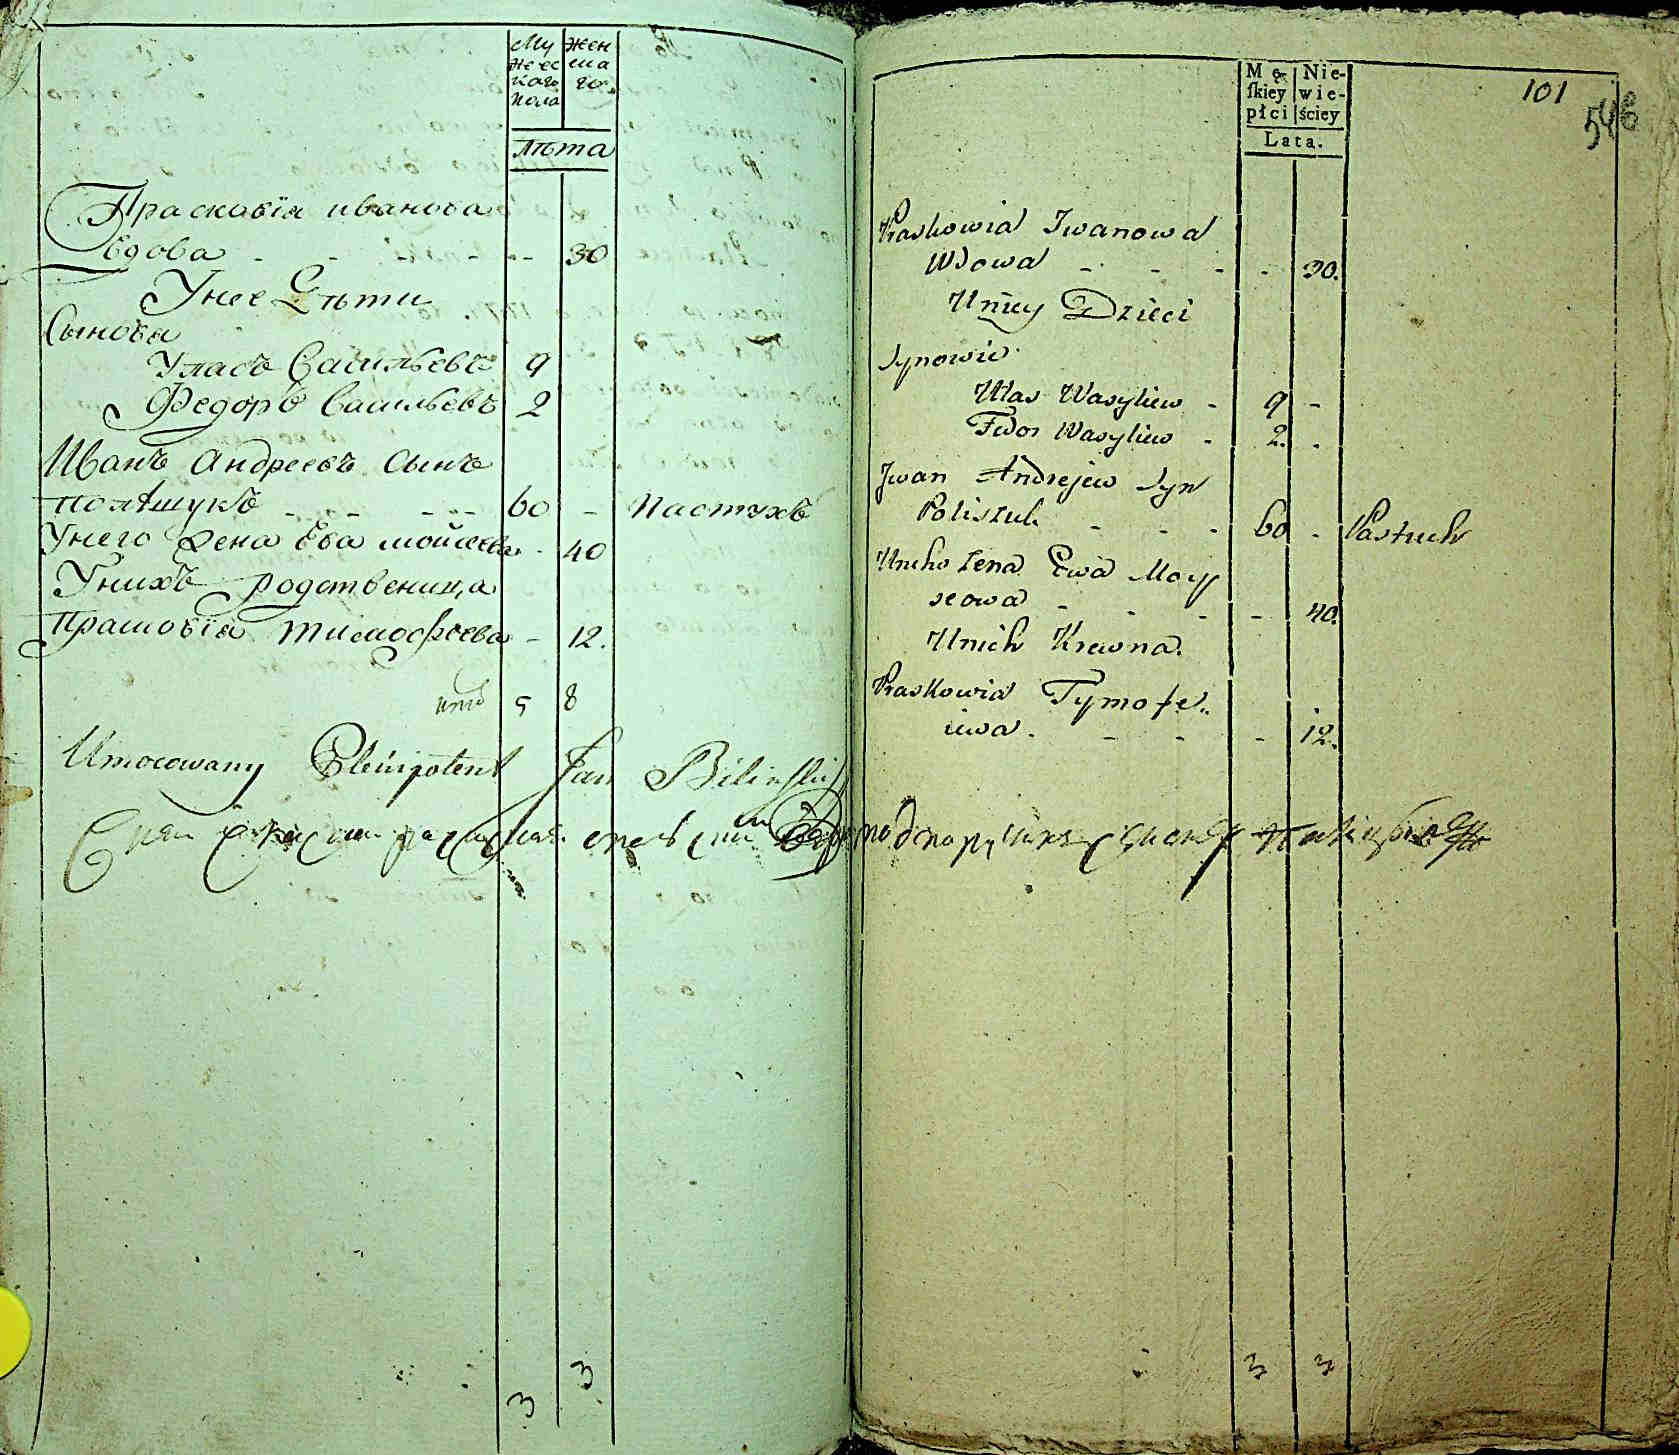 Му
жес
каго
пола
жен
ска
го
Лѣта
Прасковїя иванова
вдова - - - - 30
Унее Дѣти
Сынова
Уласъ Васильевъ 9
Федоръ Васильевъ 2
Иванъ Андреевъ Сынъ
полѣшукъ - - - - 60 - пастухъ
Унего жена Ева мойсеева - 40
Унихъ родственица
Прасковїя тимофеева - 12.
5 8
Umocowany Plenipotent Jan Bilinski
3 3
Mę-
ſkiey
płci
Nie-
wie-
ściey
Lata.
101
546
Praskowia Iwanowa
Wdowa - - - - 30.
Uniey Dzieci
Synowie
Ułas Wasyliew - 9 -
Fedor Wasyliew - 2. -
Jwan Andrejew Syn
Poliszuk - - - 60 - Pastuch
Unieho żena Ewa Moy
seowa - - - - 40.
Unich Krewna.
Praskowia Tymofe..
iewa. - - - 12.
3 3